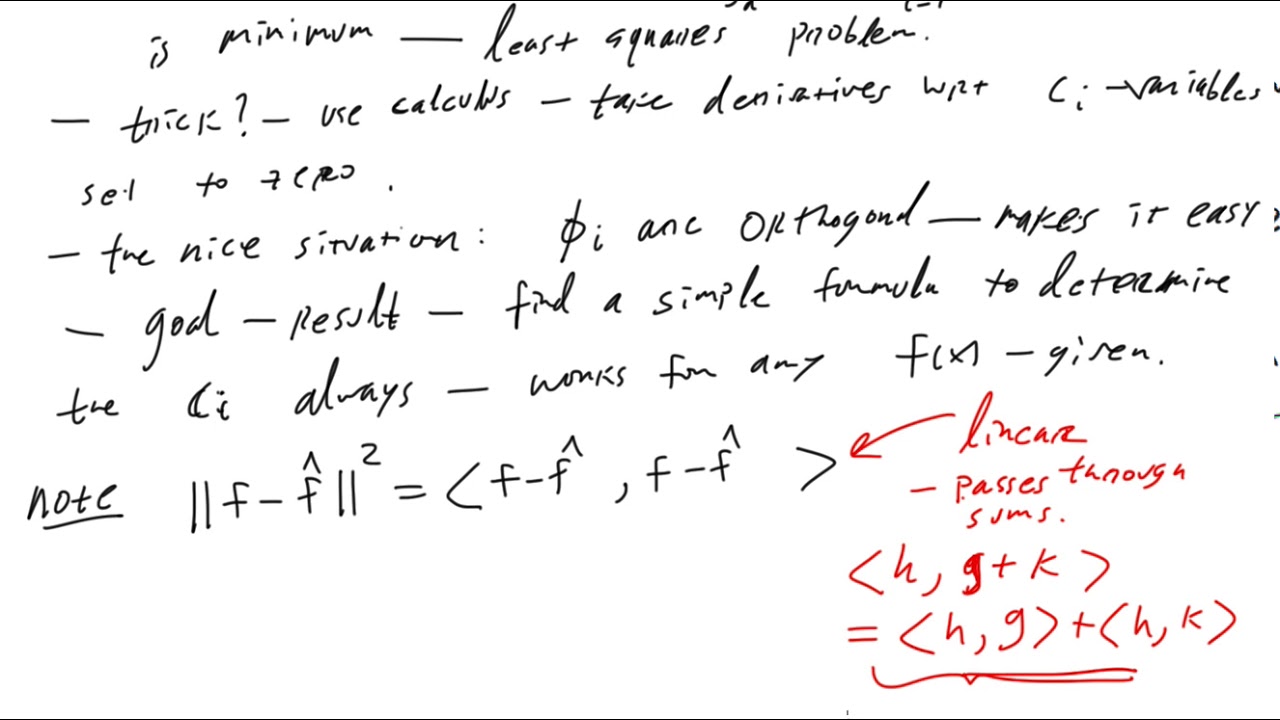 is minimum — least squares problem.
– trick? – use calculus – take derivatives wrt Ci → variables
set to zero.
– the nice situation: ϕi are orthogonal — makes it easy
– goal – result – find a simple formula to determine
the Ci always — works for any f(x) – given.
note ||f – f̂||² = <f-f̂, f-f̂>
linear
– passes through
sums.
<h, g+k>
= <h, g>+<h, k>